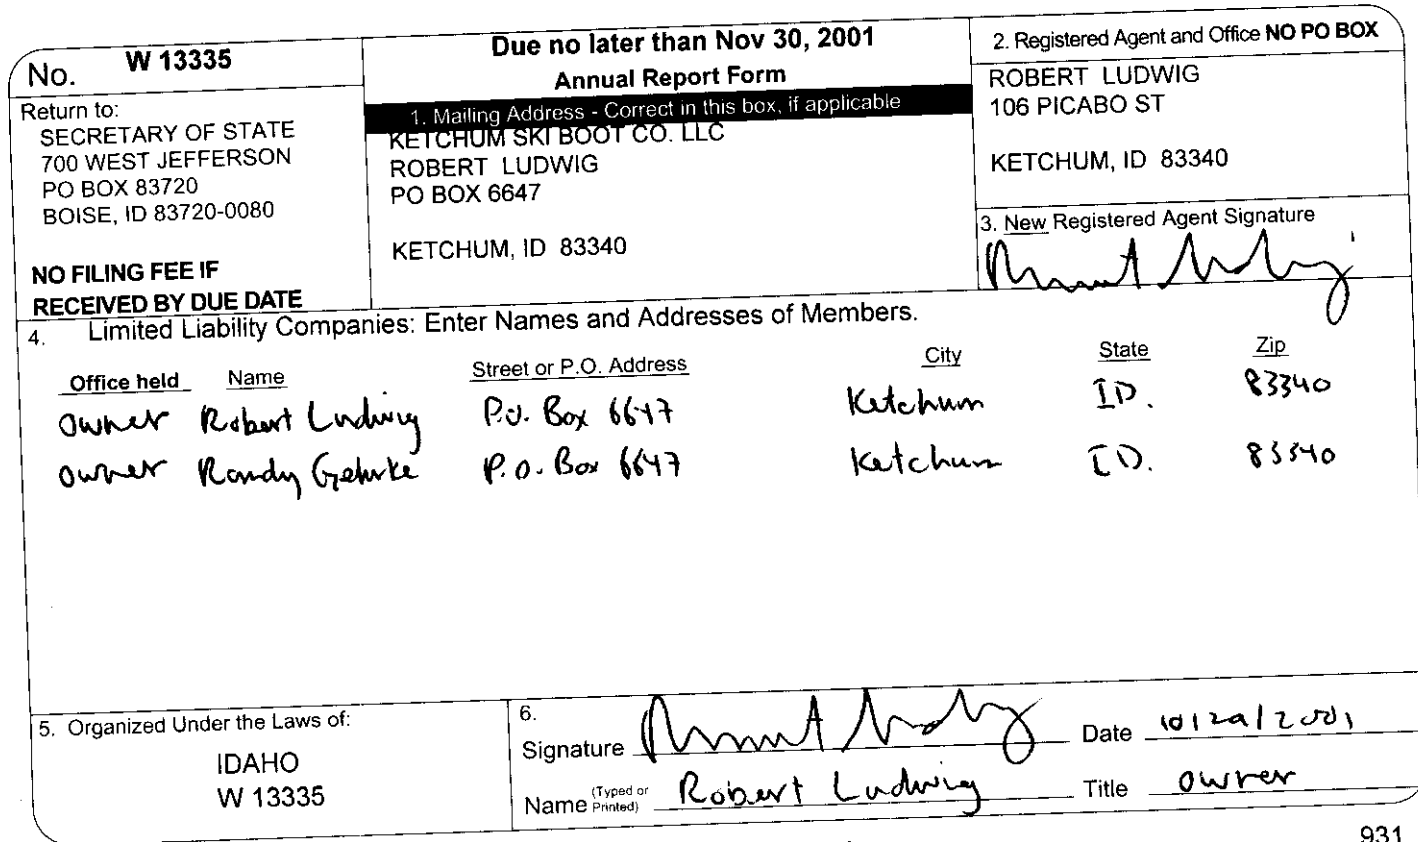 No. W 13335
Return to:
SECRETARY OF STATE
700 WEST JEFFERSON
PO BOX 83720
BOISE, ID 83720-0080
NO FILING FEE IF
RECEIVED BY DUE DATE
Due no later than Nov 30, 2001
Annual Report Form
1. Mailing Address - Correct in this box, if applicable
KETCHUM SKI BOOT CO. LLC
ROBERT LUDWIG
PO BOX 6647
KETCHUM, ID 83340
2. Registered Agent and Office NO PO BOX
ROBERT LUDWIG
106 PICABO ST
KETCHUM, ID 83340
3. New Registered Agent Signature
4. Limited Liability Companies: Enter Names and Addresses of Members.
Office held Name Street or P.O. Address City State Zip
owner Robert Ludwig P.O. Box 6647 Ketchum ID. 83340
owner Randy Gehrke P.O. Box 6647 Ketchum ID. 83340
5. Organized Under the Laws of:
IDAHO
W 13335
6.
Signature Date 10/29/2001
Name (Typed or Printed) Robert Ludwig Title owner
931